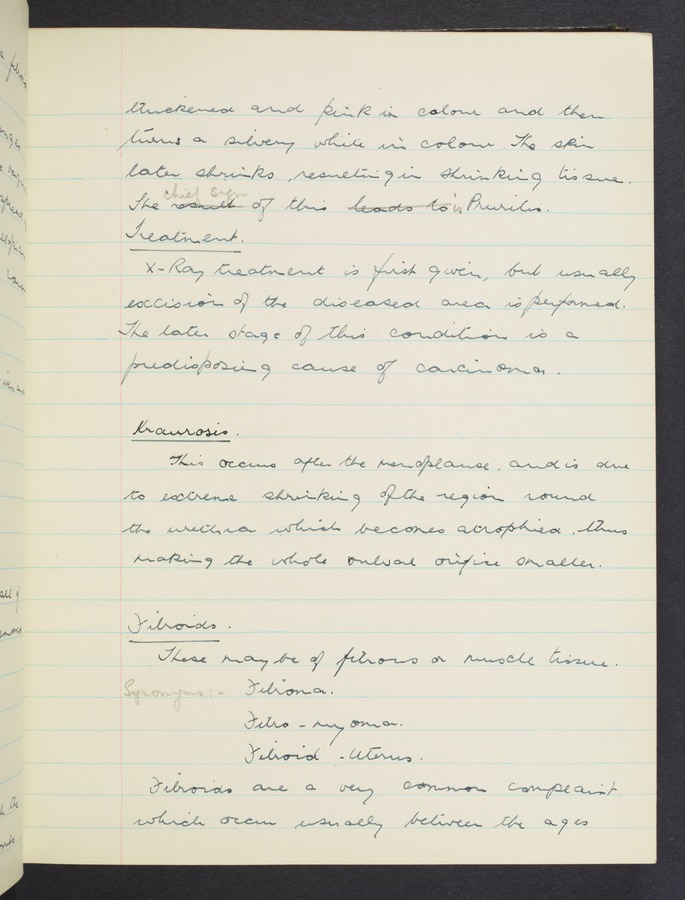 thickened and pink in colour and then
turns a silvery white in colour. The skin
later shrinks, resulting in shrinking tissue.
chief sign
The result of this leads to is Pruritis.
Treatment.
X-Ray treatment is first given, but usually
excision of the diseased area is performed.
The later stage of this condition is a
predisposing cause of carcinoma.
Kraurosis.
This occurs after the menoplause. and is due
to extreme shrinking of the region round
the urethra which becomes atrophied, thus
making the whole vulval orifice smaller.
Fibroids.
These may be of fibrous or muscle tissue.
Synonyms:- Fibroma.
Fibro-myoma.
Fibroid-Uterus.
Fibroids are a very common complaint
which occur usually between the ages